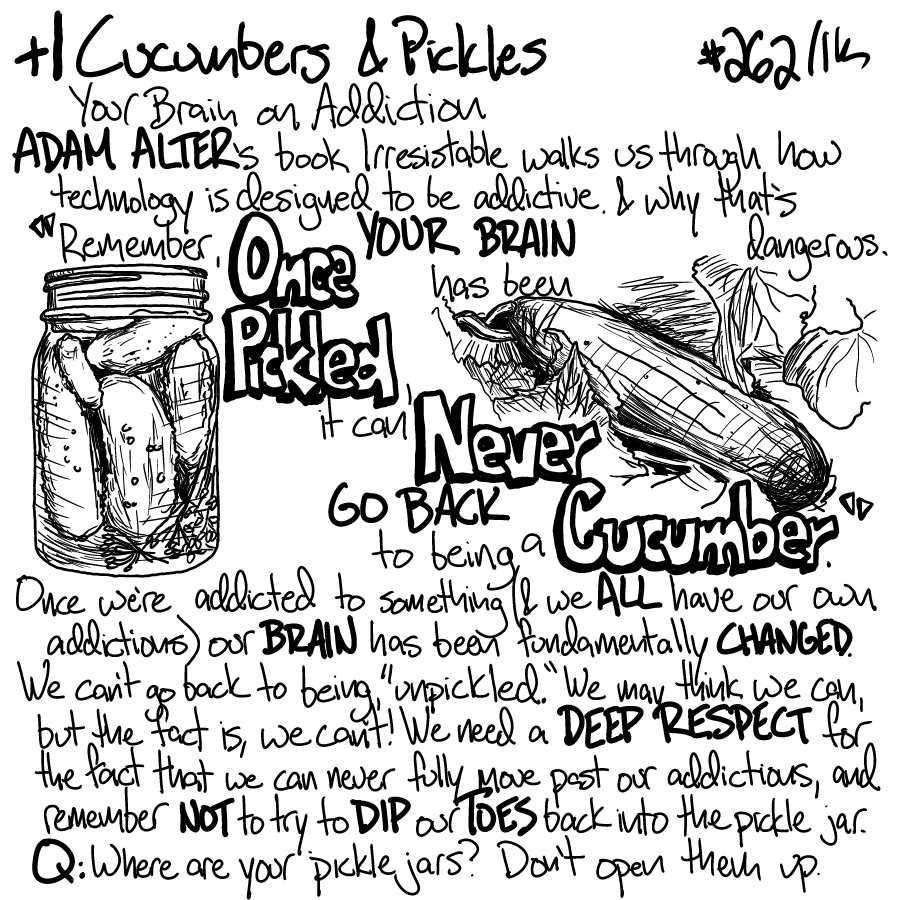 +1 Cucumbers & Pickles #262/1k
Your Brain on Addiction
ADAM ALTER's book Irresistable walks us through how
technology is designed to be addictive. & why that's
dangerous.
"Remember, Once YOUR BRAIN
has been
Pickled
it can
Never
GO BACK
to being a Cucumber."
Once we're addicted to something (& we ALL have our own
addictions) our BRAIN has been fundamentally CHANGED.
We can't go back to being "unpickled." We may think we can,
but the fact is, we can't! We need a DEEP RESPECT for
the fact that we can never fully move past our addictions, and
remember NOT to try to DIP our TOES back into the pickle jar.
Q: Where are your pickle jars? Don't open them up.